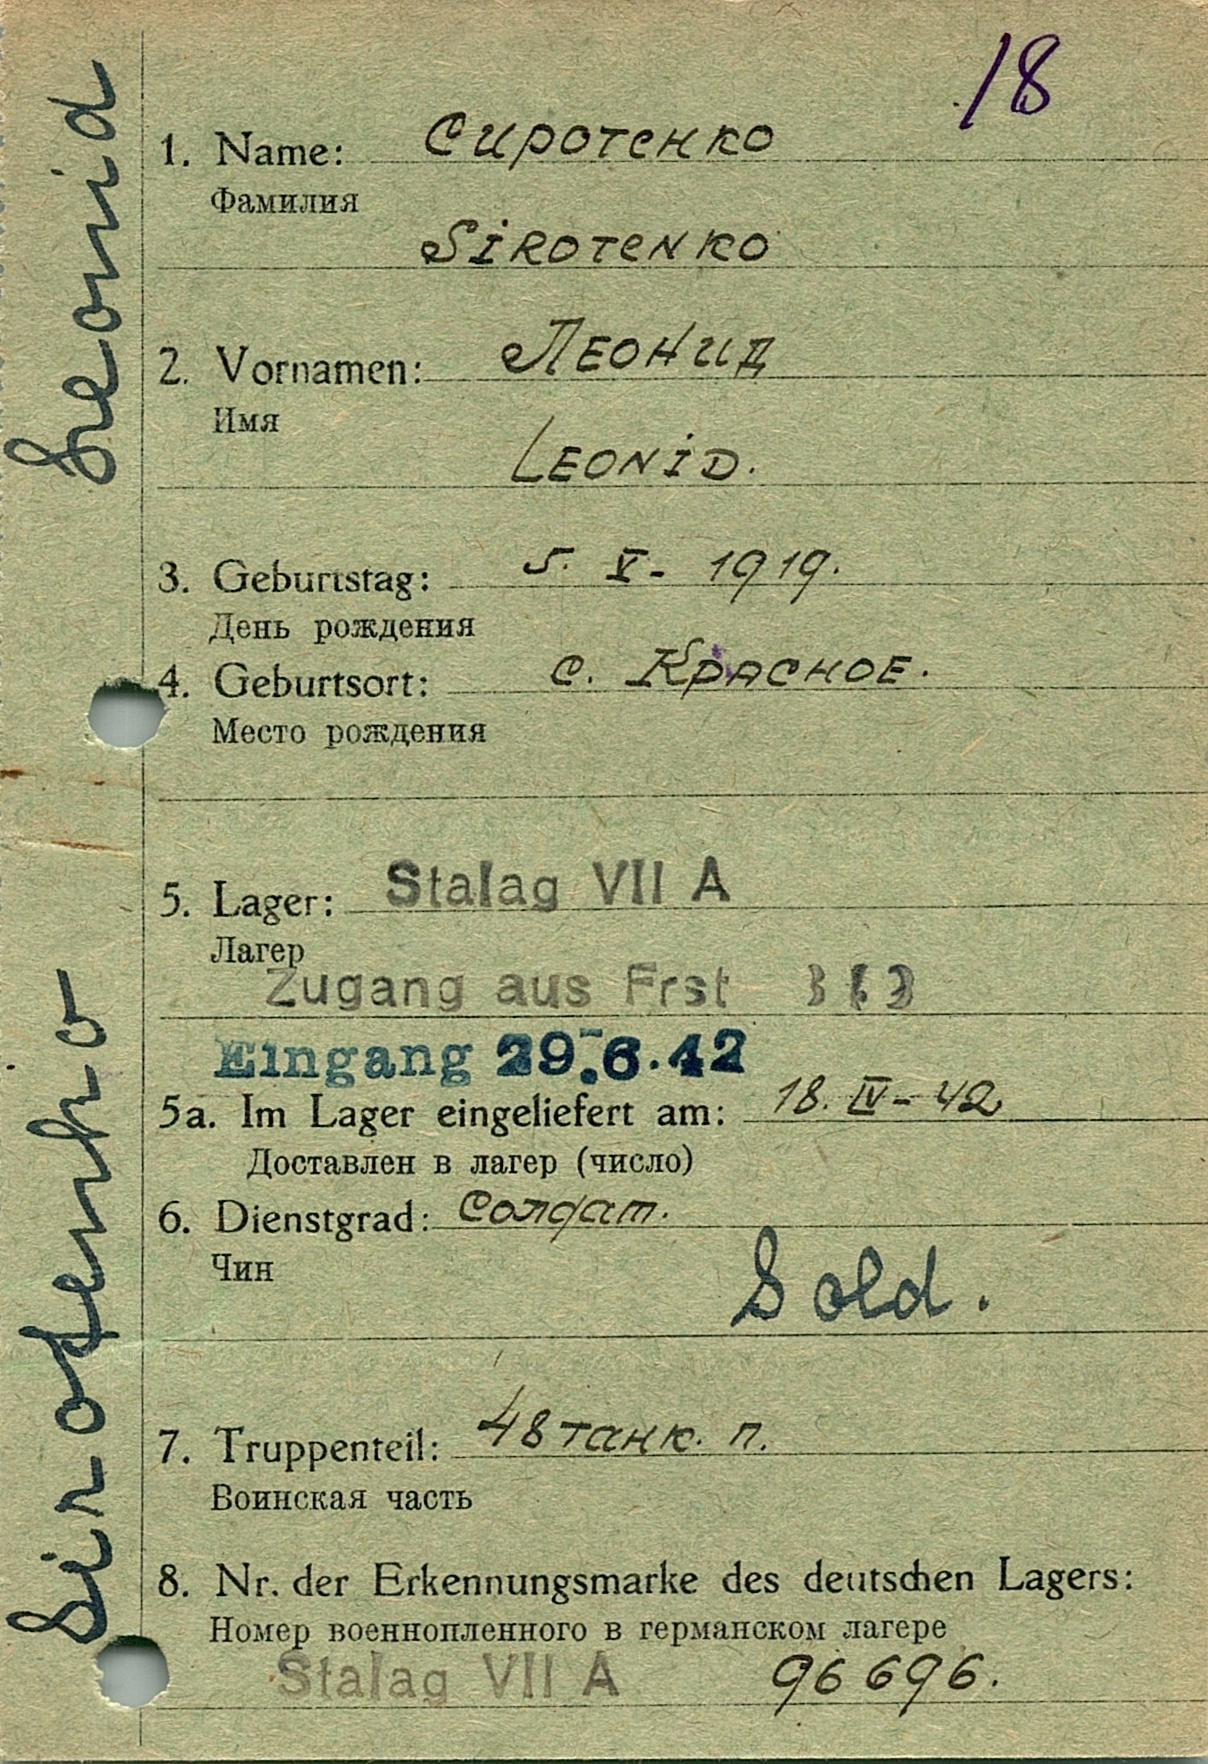 18
Leonid
Sirotenko
1. Name: Сиротенко
Фамилия
Sirotenko
2. Vornamen: Леонид
Имя
Leonid.
3. Geburtstag: 5. V - 1919.
День рождения
4. Geburtsort: с. Красное.
Место рождения
5. Lager: Stalag VII A
Лагер
Zugang aus Frst
Eingang 29.6.42
5a. Im Lager eingeliefert am: 18. IV - 42
Доставлен в лагер (число)
6. Dienstgrad: Солдат.
Чин
Sold.
7. Truppenteil: 48 танк. п.
Воинская часть
8. Nr. der Erkennungsmarke des deutschen Lagers:
Номер военнопленного в германском лагере
Stalag VII A 96696.